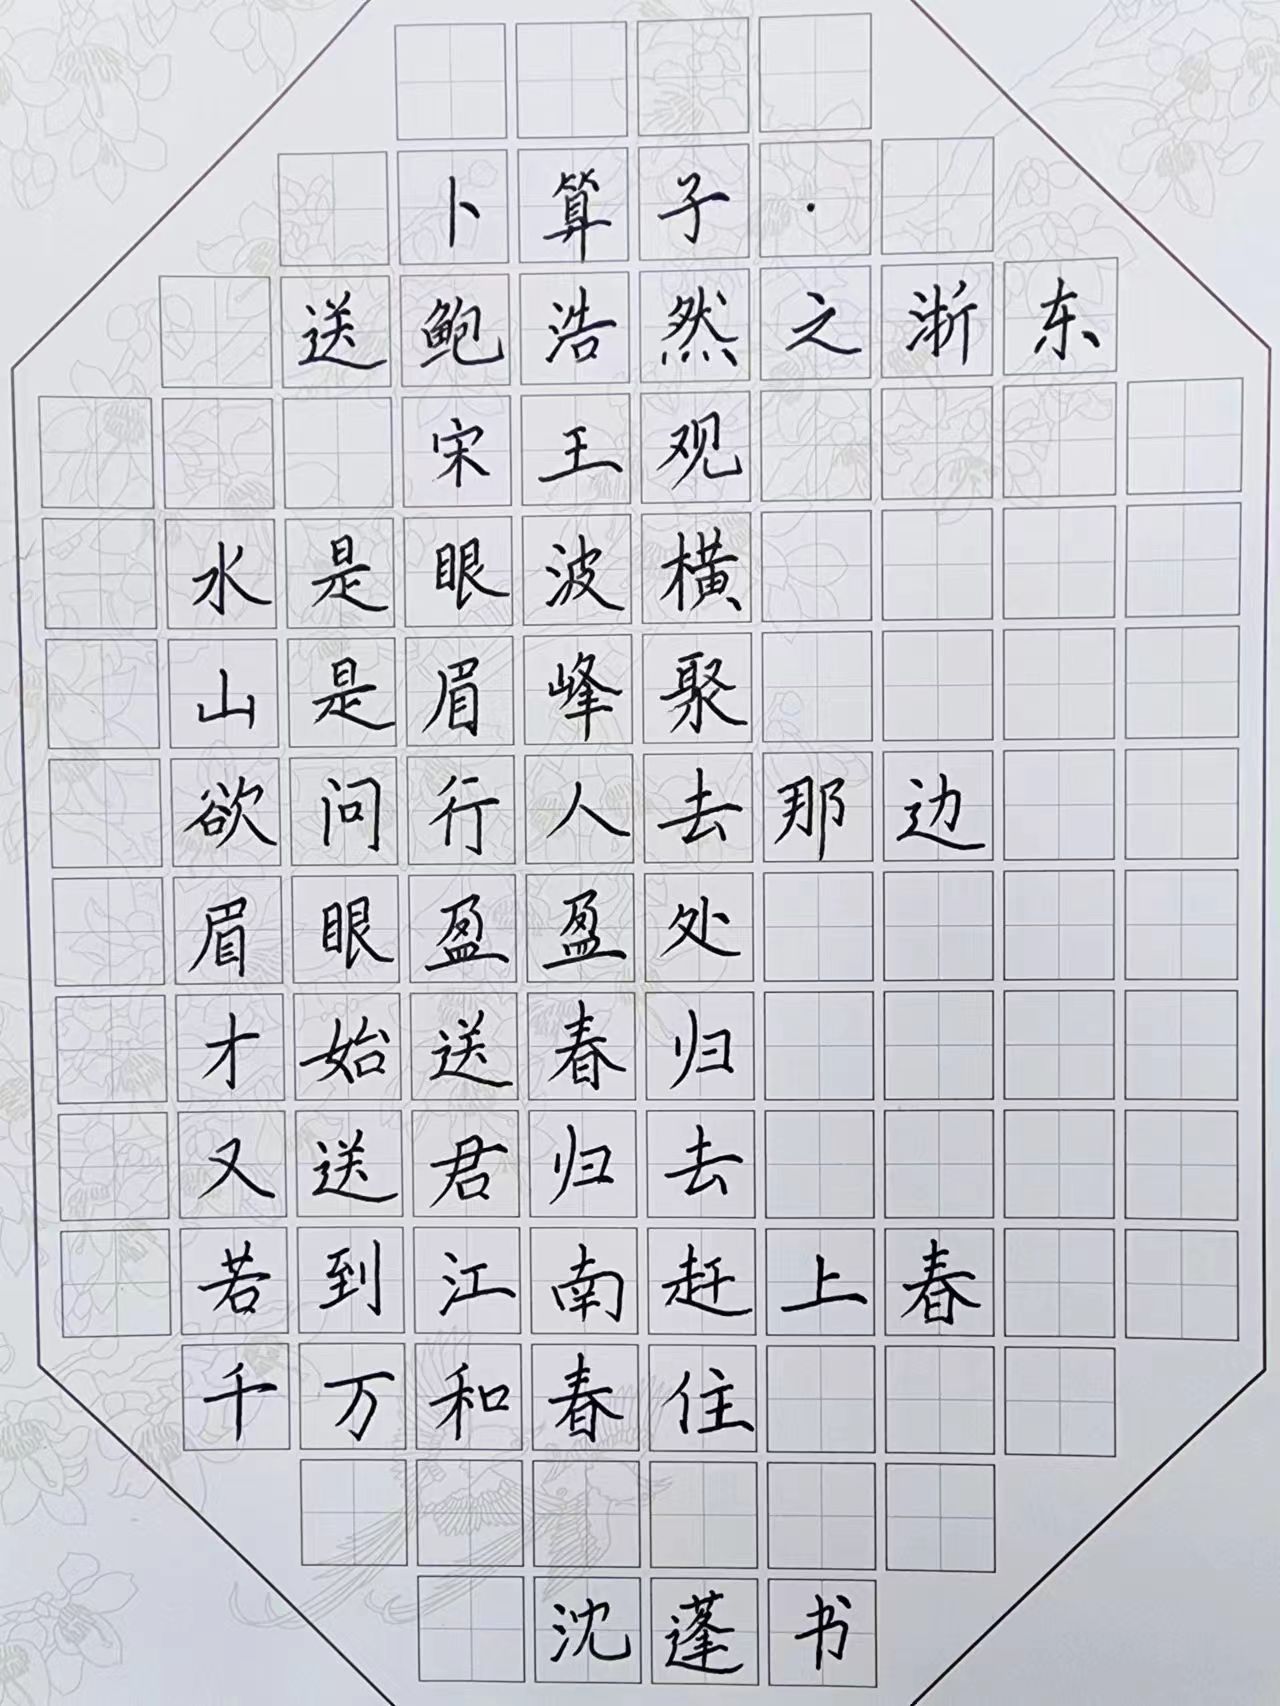 卜算子·
送鲍浩然之浙东
宋王观
水是眼波横
山是眉峰聚
欲问行人去那边
眉眼盈盈处
才始送春归
又送君归去
若到江南赶上春
千万和春住
沈蓬书